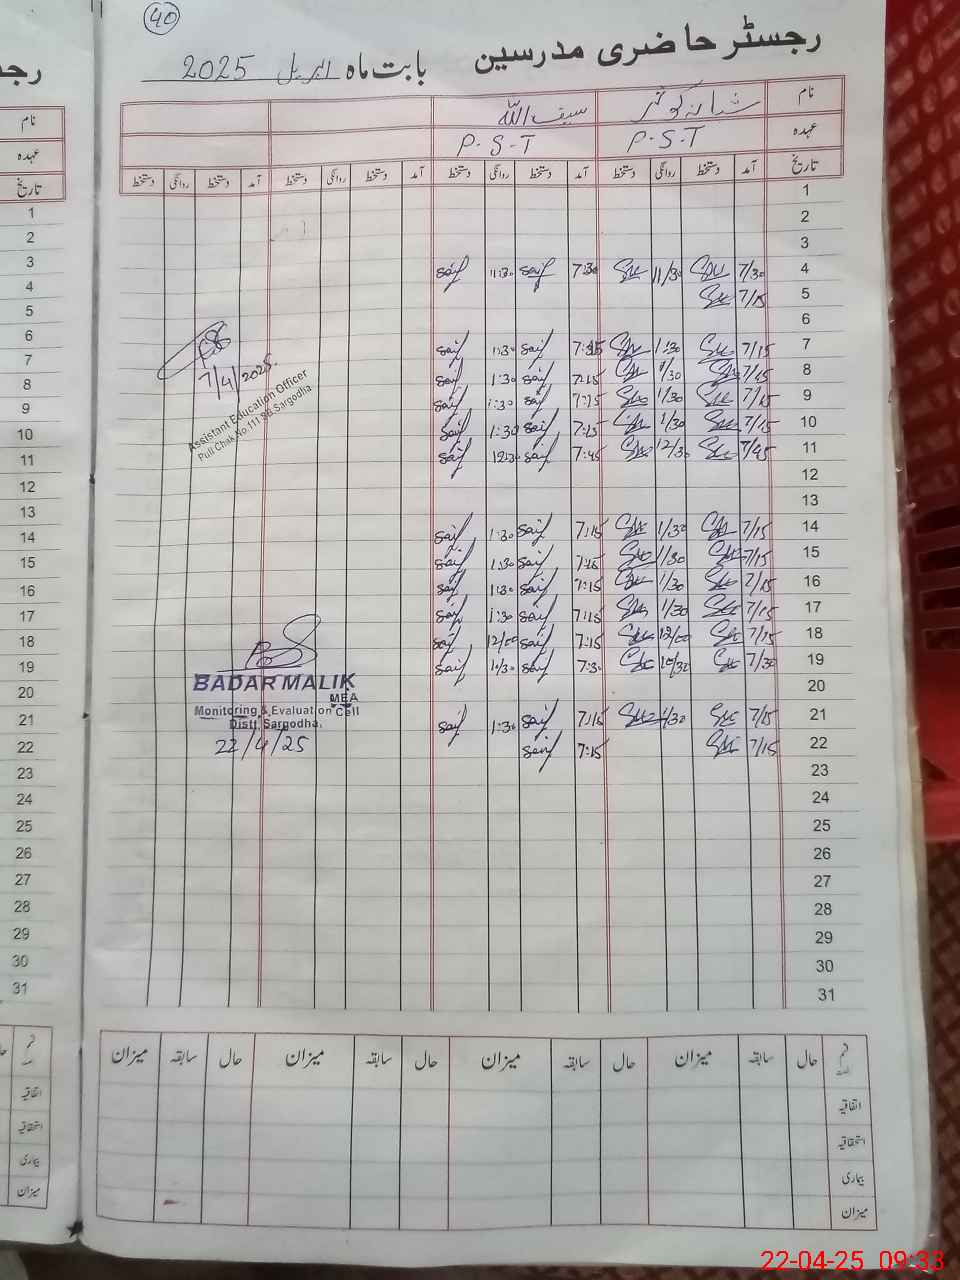 40
رجسٹر حاضری مدرسین بابت ماہ اپریل 2025
نام شبانہ کوثر سیف اللہ
عہدہ P.S.T P.S.T
تاریخ آمد دستخط روانگی دستخط آمد دستخط روانگی دستخط آمد دستخط روانگی دستخط آمد دستخط روانگی دستخط
1
2
3
4 7/30 11/30 7:30 saif 11:30 saif
5 7/15
6
7 7/15 1:30 saif 1:30 saif
8 7/15 1/30 7:15 saif 1:30 saif
9 7/15 1/30 7:15 saif 1:30 saif
10 7/15 1/30 7:15 saif 1:30 saif
11 7/45 12/30 7:45 saif 12:30 saif
12
13
14 7/15 1/30 7:15 saif 1:30 saif
15 7/15 1/30 7:15 saif 1:30 saif
16 7/15 1/30 7:15 saif 1:30 saif
17 7/15 1/30 7:15 saif 1:30 saif
18 7/15 12/00 7:15 saif 12/00 saif
19 7/30 10/30 7:30 saif 10/30 saif
20
21 7/15 1/30 7:15 saif 1:30 saif
22 7/15 7:15 saif
23
24
25
26
27
28
29
30
31
7/4/2025.
Assistant Education Officer
Pull Chak No.111 SB Sargodha
BADAR MALIK
MEA
Monitoring & Evaluation Cell
Distt. Sargodha.
22/4/25
حال سابقہ میزان حال سابقہ میزان حال سابقہ میزان حال سابقہ میزان
اتفاقیہ
استحقاقیہ
بیماری
میزان
رجد
نام
عہدہ
تاریخ
1
2
3
4
5
6
7
8
9
10
11
12
13
14
15
16
17
18
19
20
21
22
23
24
25
26
27
28
29
30
31
اتفاقیہ
استحقاقیہ
بیماری
میزان
22-04-25 09:33